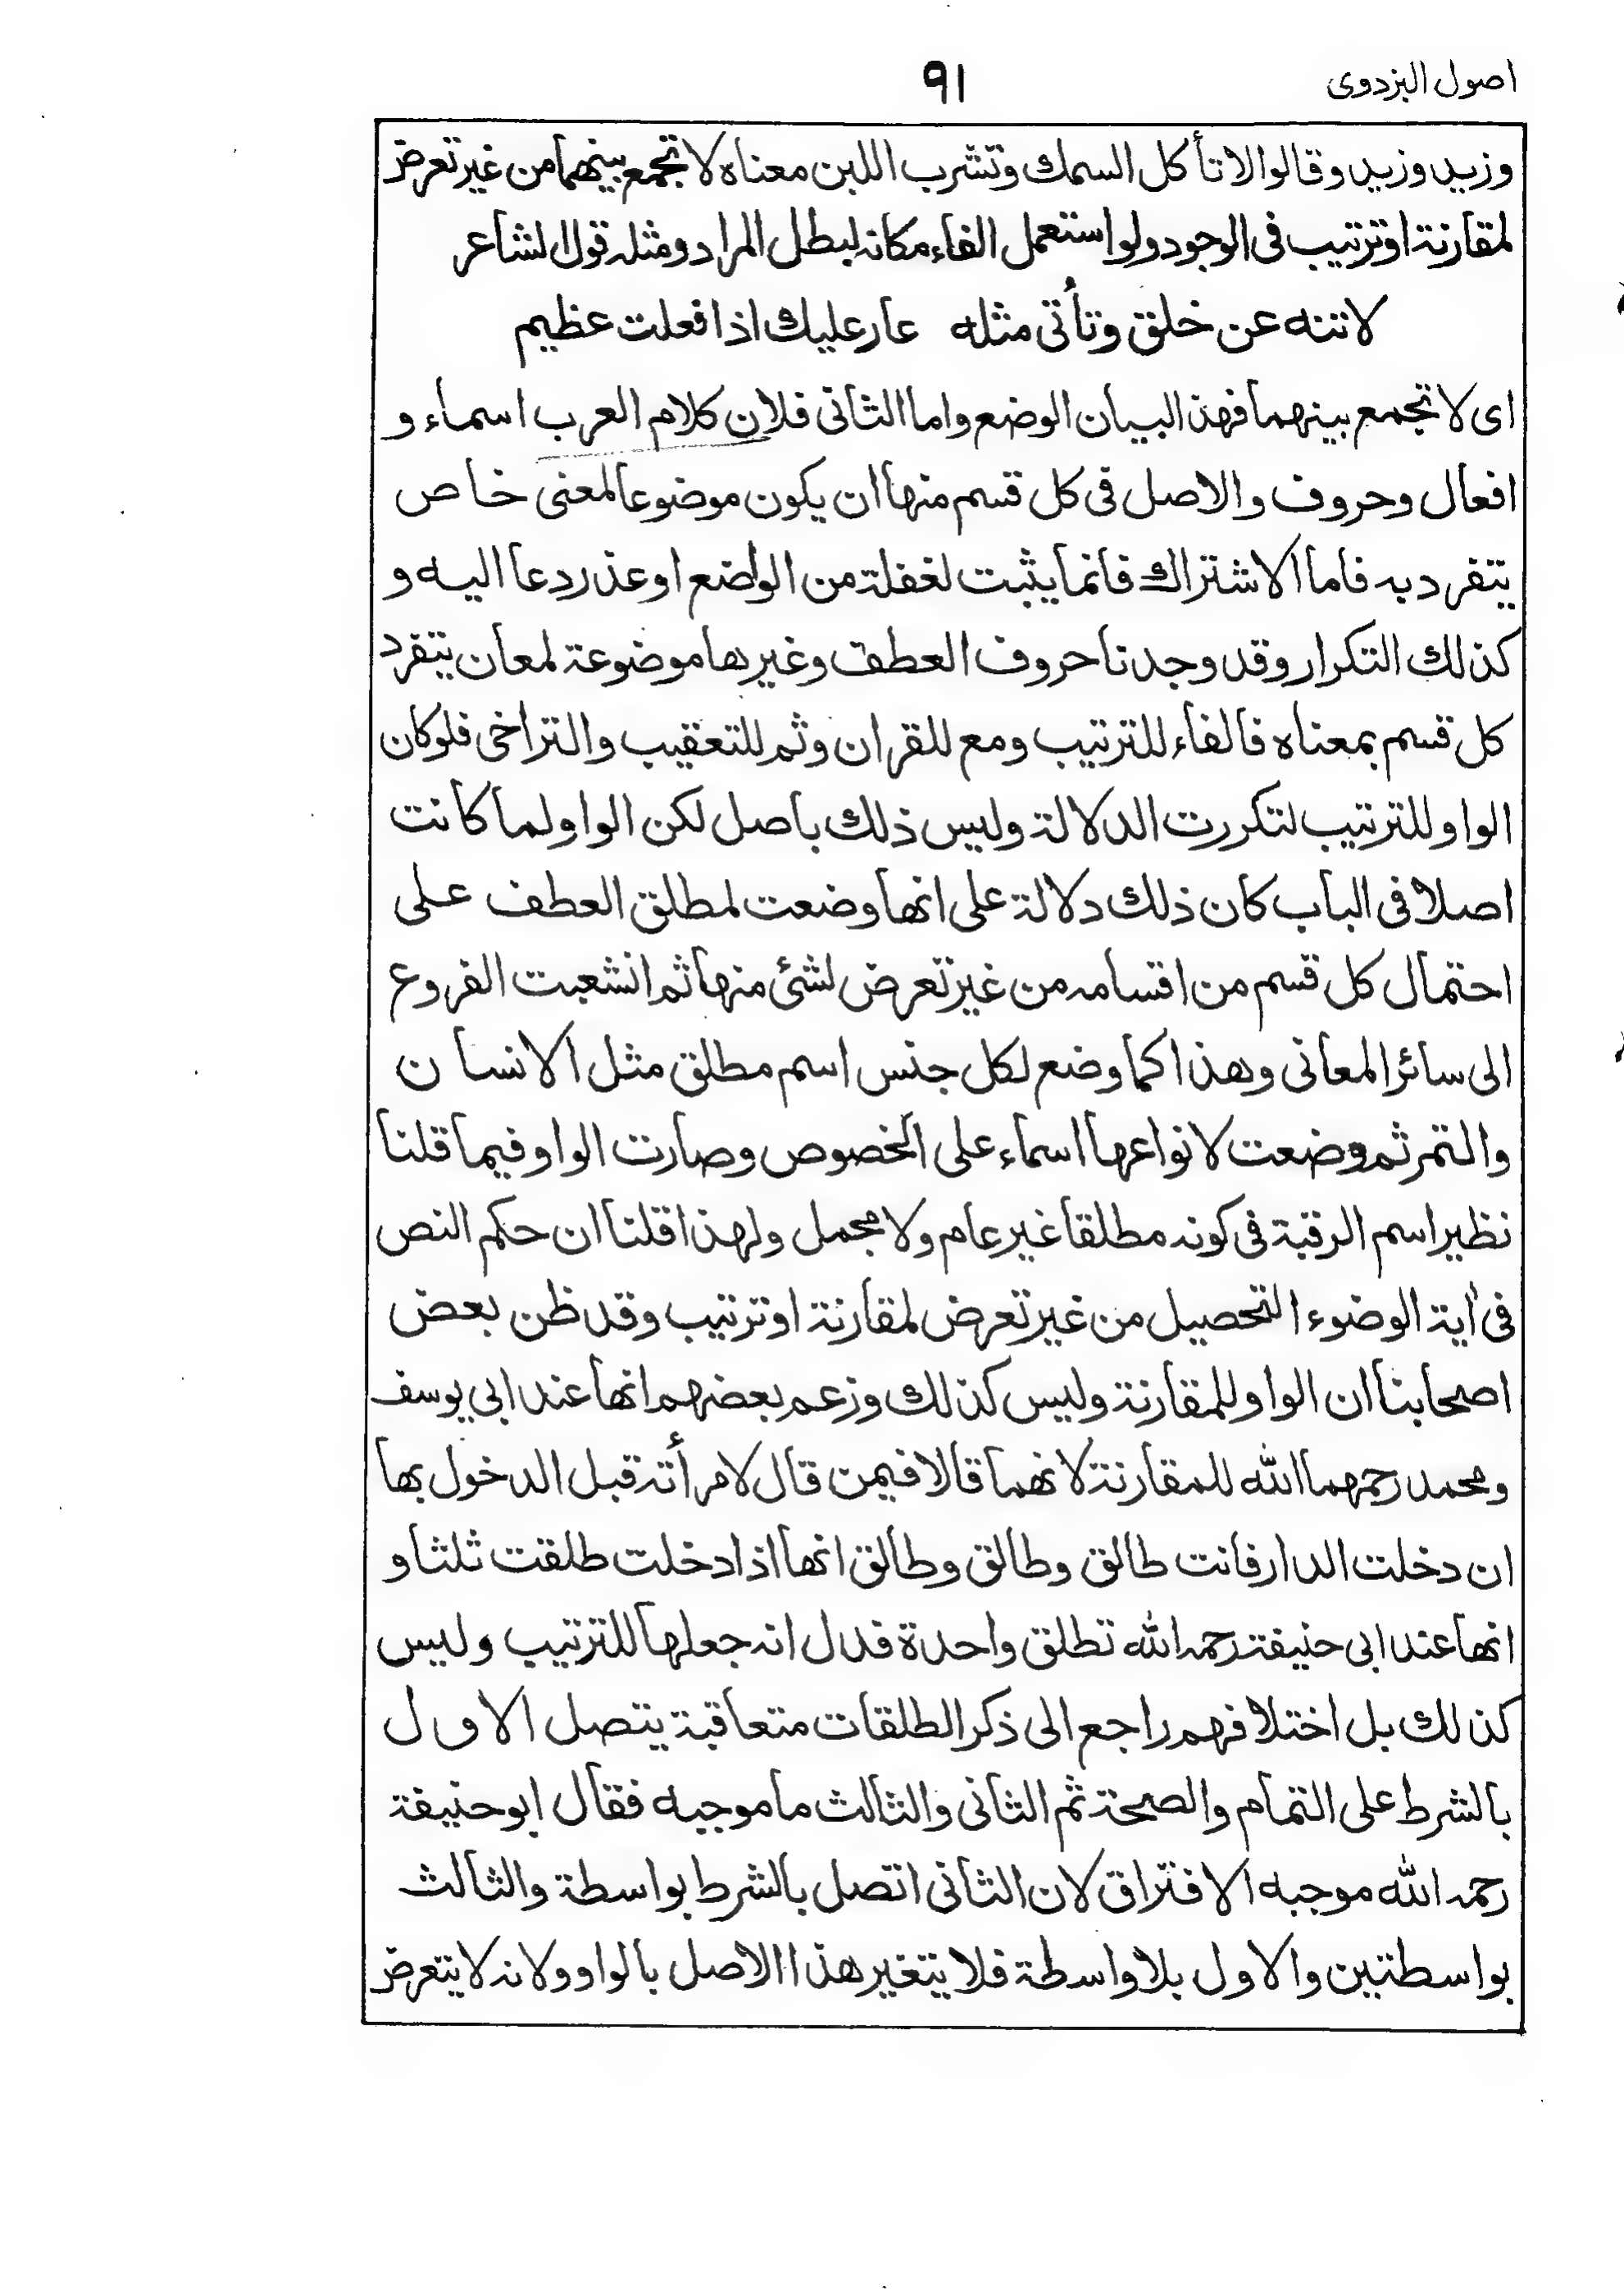 اصول البزدوی
۹۱
وزيد وزيد وقالوا لا تأكل السمك وتشرب اللبن معناه لا تجمع بينهما من غير تعرض
لمقارنة او ترتيب فى الوجود ولو استعمل الفاء مكانه لبطل المراد ومثله قول الشاعر
لا تنه عن خلق وتأتى مثله عار عليك اذا فعلت عظيم
اى لا تجمع بينهما فهذا لبيان الوضع واما الثانى فلان كلام العرب اسماء و
افعال وحروف والاصل فى كل قسم منها ان يكون موضوعا لمعنى خاص
يتفرد به فاما الاشتراك فانما يثبت لغفلة من الواضع او عذر دعا اليه و
كذلك التكرار وقد وجدنا حروف العطف وغيرها موضوعة لمعان يتفرد
كل قسم بمعناه فالفاء للترتيب ومع للقران وثم للتعقيب والتراخى فلوكان
الواو للترتيب لتكررت الدلالة وليس ذلك باصل لكن الواو لما كانت
اصلا فى الباب كان ذلك دلالة على انها وضعت لمطلق العطف على
احتمال كل قسم من اقسامه من غير تعرض لشئ منها ثم انشعبت الفروع
الى سائر المعانى وهذا كما وضع لكل جنس اسم مطلق مثل الانسان
والتمر ثم وضعت لانواعها اسماء على الخصوص وصارت الواو فيما قلنا
نظير اسم الرقبة فى كونه مطلقا غير عام ولا مجمل ولهذا قلنا ان حكم النص
فى أية الوضوء التحصيل من غير تعرض لمقارنة او ترتيب وقد ظن بعض
اصحابنا ان الواو للمقارنة وليس كذلك وزعم بعضهم انها عند ابي يوسف
ومحمد رحمهما الله للمقارنة لانهما قالا فيمن قال لامرأته قبل الدخول بها
ان دخلت الدار فانت طالق وطالق وطالق انها اذا دخلت طلقت ثلثا و
انها عند ابى حنيفة رحمه الله تطلق واحدة فدل انه جعلها للترتيب وليس
كذلك بل اختلافهم راجع الى ذكر الطلقات متعاقبة يتصل الاول
بالشرط على التمام والصحة ثم الثانى والثالث ما موجبه فقال ابو حنيفة
رحمه الله موجبه الافتراق لان الثانى اتصل بالشرط بواسطة والثالث
بواسطتين والاول بلا واسطة فلا يتغير هذا الاصل بالواو ولانه لا يتعرض